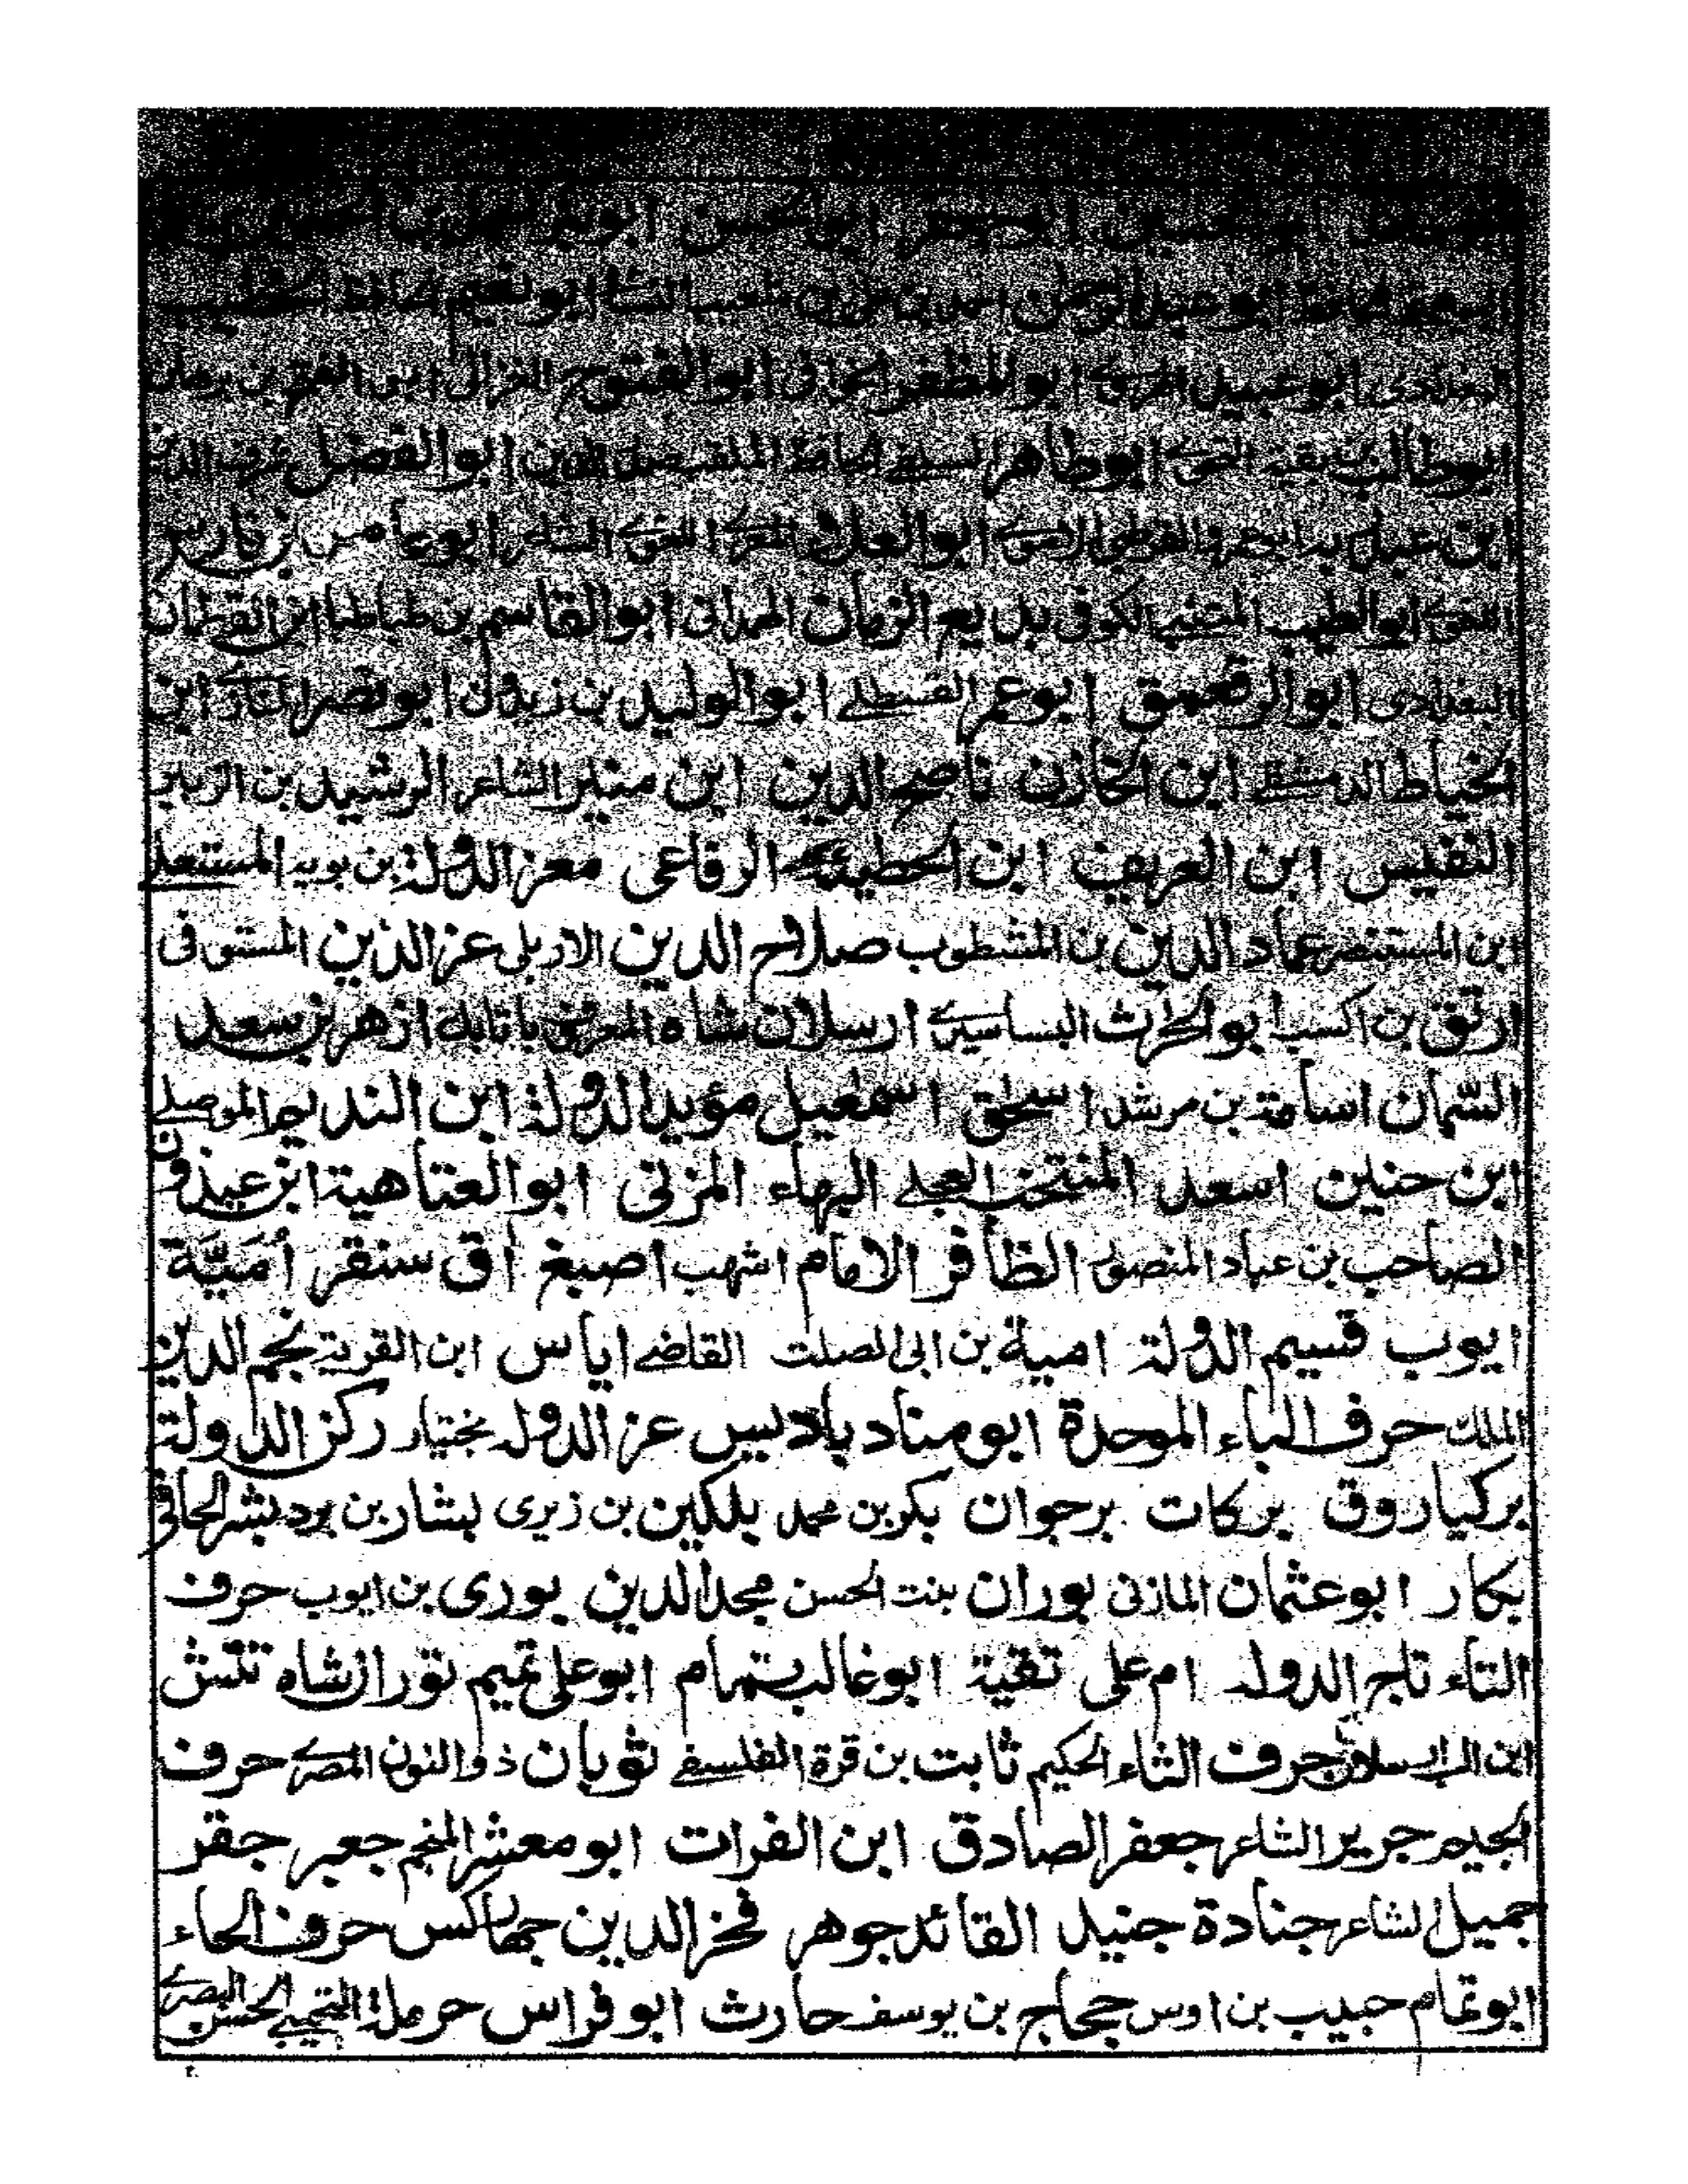 ابو الحسين ابو جعفر ابو الحسن
الحافظ ابو عبد الرحمن احمد بن علي بن شعيب النسائي ابو نعيم الحافظ الخطيب
البغدادي ابو عبيد الهروي ابو المظفر الخوافي ابو الفتوح الغزالي ابن الفتح بن برهان
ابو طالب بن بقية النحوي ابو طاهر السلفي الحافظ ابو الفضل شرف الدين
ابن عبد ربه ابو عمر القرطبي ابو العلاء المعري النحوي الشاعر ابو عامر بن فارس
اللغوي ابو الطيب المتنبي الكوفي بديع الزمان الهمداني ابو القاسم بن طباطبا ابن القطان
البغدادي ابو الرقعمق ابو عمر القسطلي ابو الوليد بن زيدون ابو نصر المنازي ابن
الخياط الدمشقي ابن الخازن ناصح الدين ابن منير الشاعر الرشيد بن الزبير
النفيس ابن العريف ابن الحطيئة الرفاعي معز الدولة بن بويه المستعلي
ابن المستنصر عماد الدين بن المشطوب صلاح الدين الاربلي عز الدين المستوفى
ارتق بن اكسب ابو الحرث البساسيري ارسلان شاه المعروف باتابك ازهر بن سعد
السّمان اسامة بن مرشد اسحق اسمعيل مؤيد الدولة ابن النديم الموصلي
ابن حنين اسعد المنتخب العجلي البهاء المزني ابو العتاهية ابن عيذون
الصاحب بن عباد المنصور الظافر الامام اشهب اصبغ اق سنقر أُمَيَّة
ايوب قسيم الدولة امية بن ابى الصلت القاضي اياس ابن القرية نجم الدين
الملك حرف الباء الموحدة ابو مناد باديس عز الدولة بختيار ركن الدولة
بركياروق بركات برجوان بكر بن محمد بلكين بن زيرى بشار بن برد بشر الحافي
بكار ابو عثمان المازنى بوران بنت الحسن مجد الدين بورى بن ايوب حرف
التاء تاج الدولة ام على تقية ابو غالب تمام ابو على تميم تورانشاه تتش
ابن الب ارسلان حرف الثاء الحكيم ثابت بن قرة الفلسفي ثوبان ذو النون المصري حرف
الجيم جرير الشاعر جعفر الصادق ابن الفرات ابو معشر المنجم جعبر جقر
جميل الشاعر جنادة جنيد القائد جوهر فخر الدين جهاركس حرف الحاء
ابو تمام حبيب بن اوس حجاج بن يوسف حارث ابو فراس حرملة التجيبي الحسن البصري